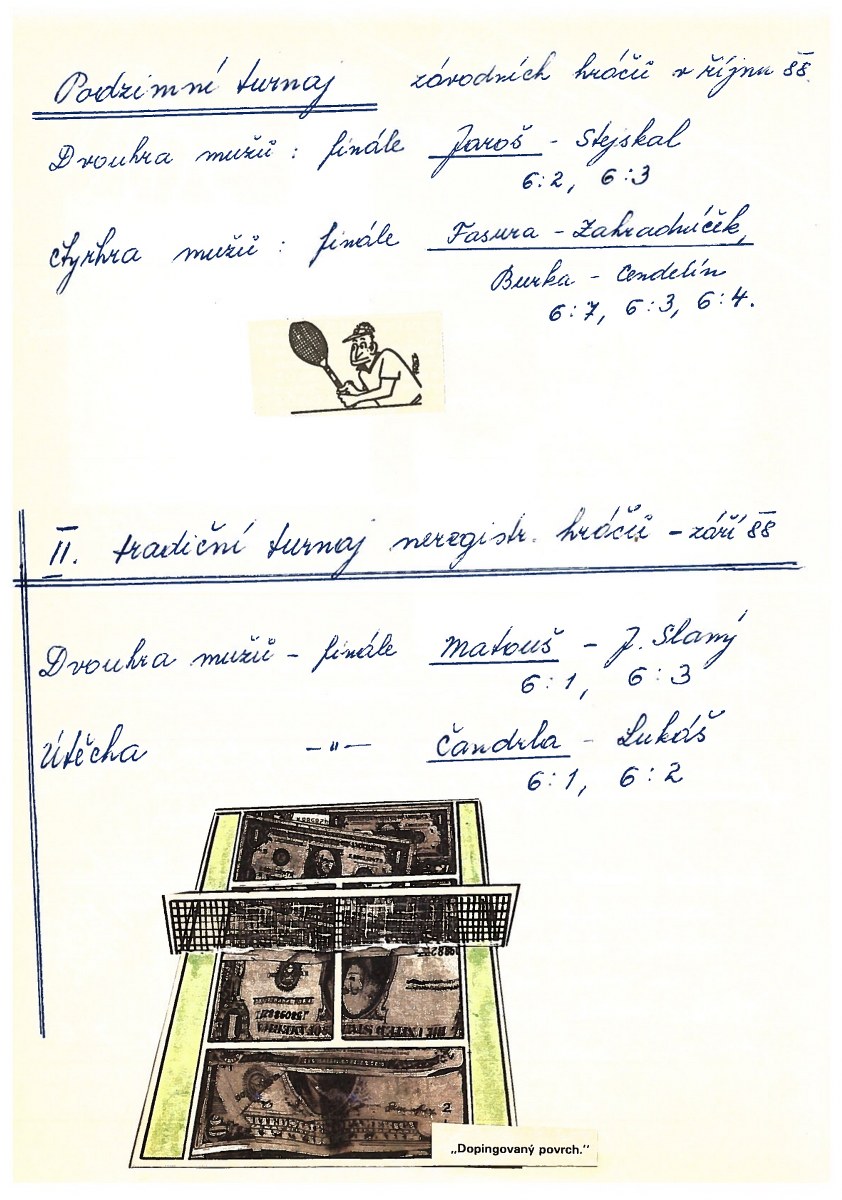 Podzimní turnaj závodních hráčů v říjnu 88.
Dvouhra mužů : finále Jaroš - Stejskal
6:2, 6:3
Čtyrhra mužů : finále Fasura - Zahradníček,
Burka - Cendelín
6:7, 6:3, 6:4.
II. tradiční turnaj neregistr. hráčů - září 88
Dvouhra mužů - finále Matouš - J. Slaný
6:1, 6:3
Útěcha —"— Čandrla - Lukáš
6:1, 6:2
„Dopingovaný povrch."